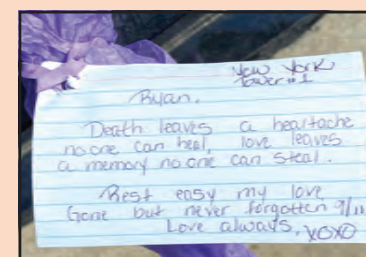 New York
Tower #1
Ryan.
Death leaves a heartache
no one can heal, love leaves
a memory no one can steal.
Rest easy my love
Gone but never forgotten 9/11
Love always, XOXO